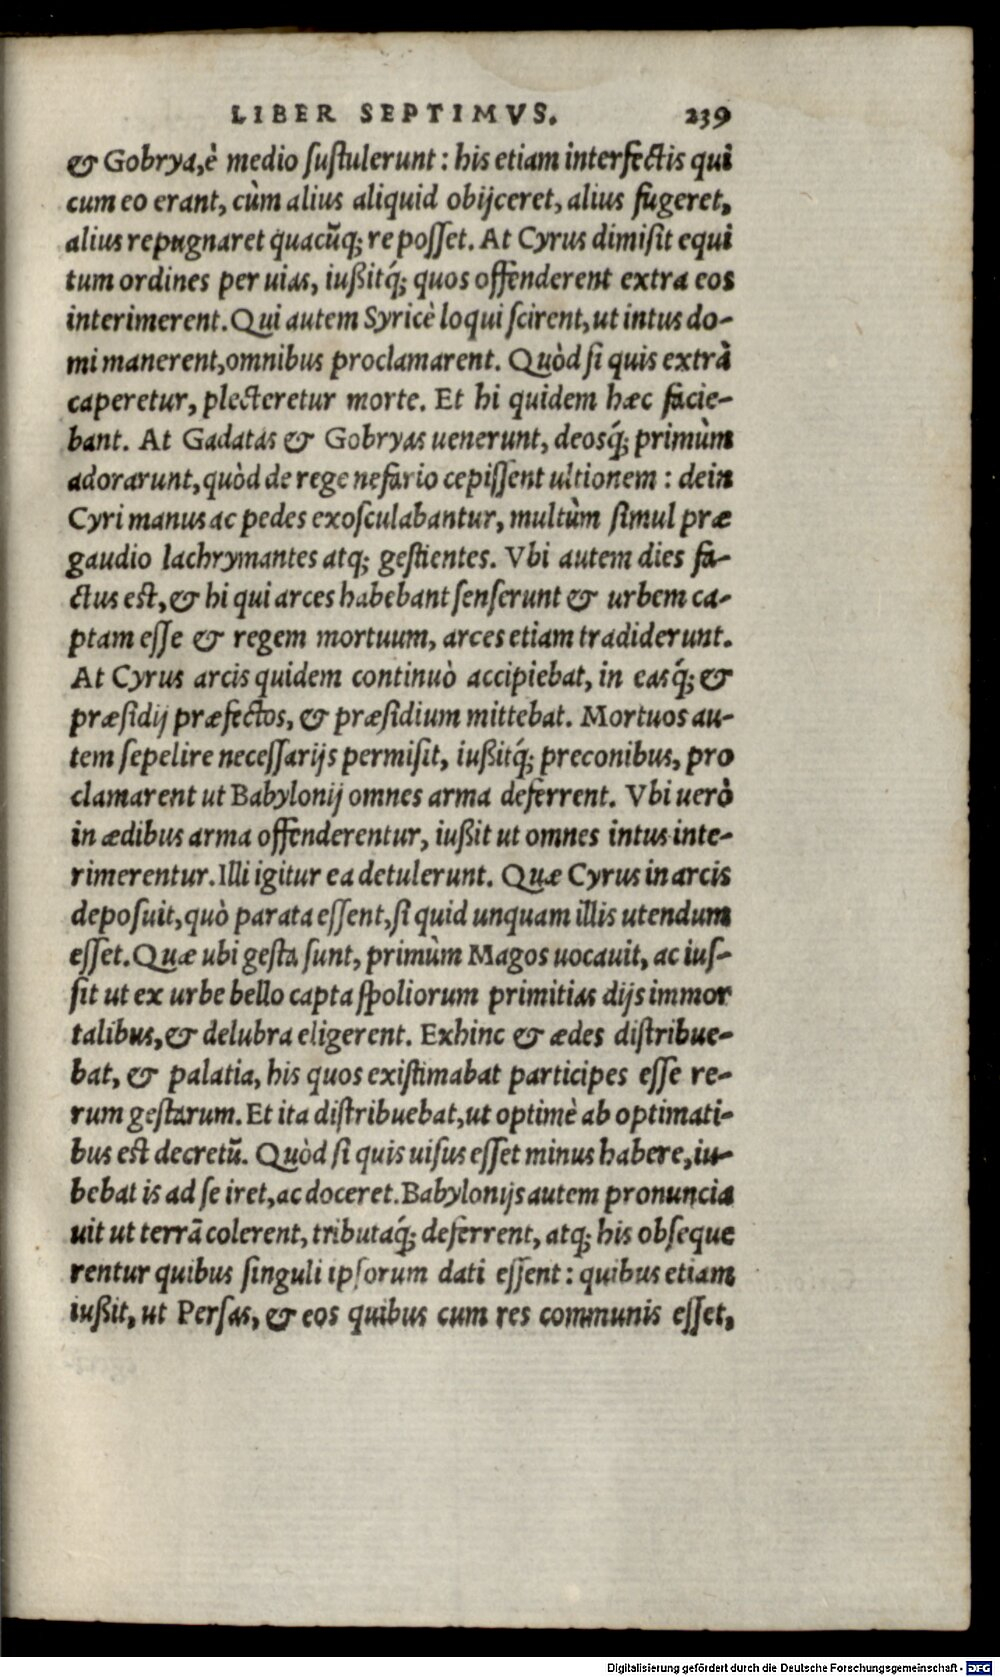 LIBER SEPTIMVS. 239
& Gobrya, è medio ſuſtulerunt: his etiam interfectis qui
cum eo erant, cùm alius aliquid obijceret, alius fugeret,
alius repugnaret quacũq; re poſſet. At Cyrus dimiſit equi
tum ordines per uias, iußitq́; quos offenderent extra eos
interimerent. Qui autem Syricè loqui ſcirent, ut intus do-
mi manerent, omnibus proclamarent. Quòd ſi quis extrà
caperetur, plecteretur morte. Et hi quidem hæc facie-
bant. At Gadatas & Gobryas uenerunt, deosq́; primùm
adorarunt, quòd de rege nefario cepiſſent ultionem: dein
Cyri manus ac pedes exoſculabantur, multùm ſimul præ
gaudio lachrymantes atq; geſtientes. Vbi autem dies fa-
ctus est, & hi qui arces habebant ſenſerunt & urbem ca-
ptam eſſe & regem mortuum, arces etiam tradiderunt.
At Cyrus arcis quidem continuò accipiebat, in easq́; &
præſidij præfectos, & præſidium mittebat. Mortuos au-
tem ſepelire neceſſarijs permiſit, iußitq́; preconibus, pro
clamarent ut Babylonij omnes arma deferrent. Vbi uerò
in ædibus arma offenderentur, iußit ut omnes intus inte-
rimerentur. Illi igitur ea detulerunt. Quæ Cyrus in arcis
depoſuit, quò parata eſſent, ſi quid unquam illis utendum
eſſet. Quæ ubi geſta ſunt, primùm Magos uocauit, ac iuſ-
ſit ut ex urbe bello capta ſpoliorum primitias dijs immor
talibus, & delubra eligerent. Exhinc & ædes diſtribue-
bat, & palatia, his quos exiſtimabat participes eſſe re-
rum geſtarum. Et ita diſtribuebat, ut optimè ab optimati-
bus est decretũ. Quòd ſi quis uiſus eſſet minus habere, iu-
bebat is ad ſe iret, ac doceret. Babylonijs autem pronuncia
uit ut terrã colerent, tributaq́; deferrent, atq; his obſeque
rentur quibus ſinguli ipſorum dati eſſent: quibus etiam
iußit, ut Perſas, & eos quibus cum res communis eſſet,
Digitalisierung gefördert durch die Deutsche Forschungsgemeinschaft - DFG